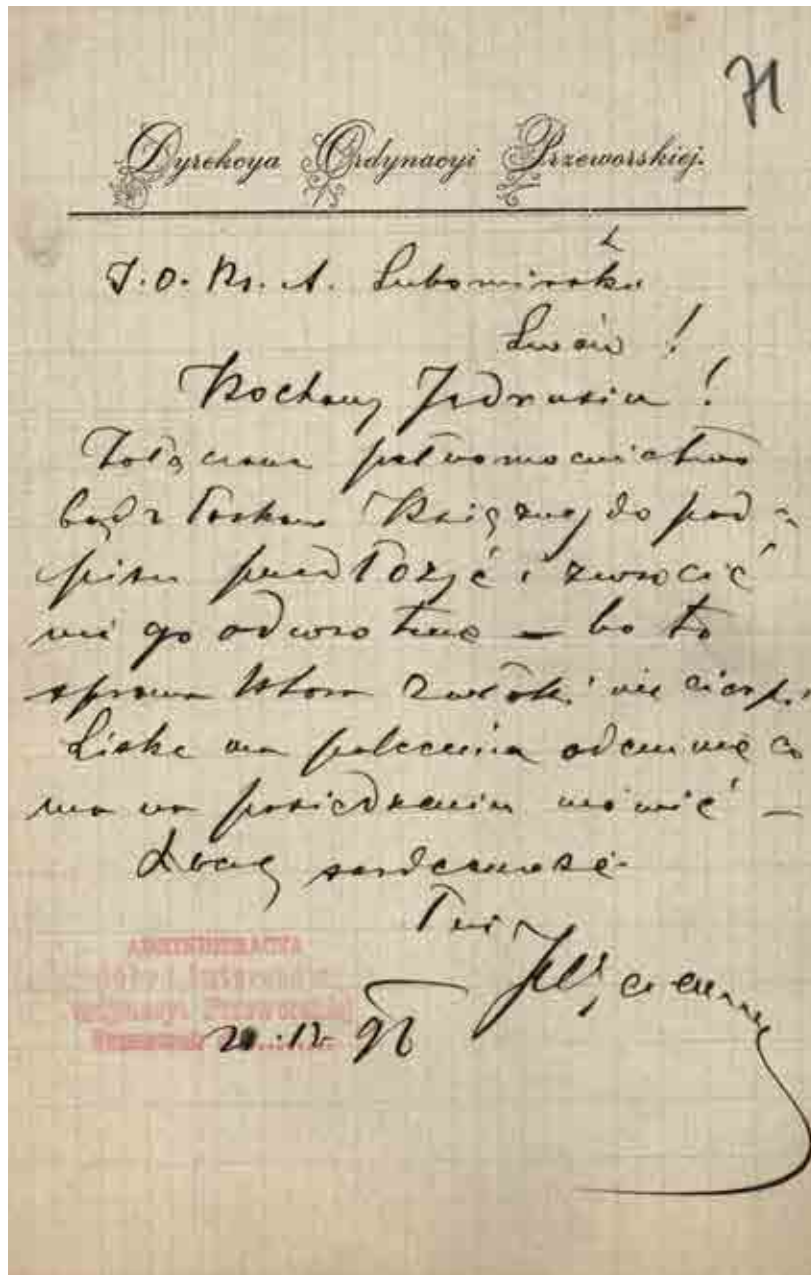 71
Dyrekcya Ordynacyi Przeworskiej.
J. O. Ks. A. Lubomirski
Lwów !
Kochany Jędrusiu !
Załączone pełnomocnictwo
bądź łaskaw Księżnej do pod-
pisu przedłożyć i zwrócić
mi go odwrotnie — bo to
sprawa która zwłoki nie cierpi.
Liske ma polecenia odemnie co
ma na posiedzeniu mówić —
serdeczności
Twój
ADMINISTRACYA
dóbr i interesów
Ordynacyi Przeworskiej
Przeworsk